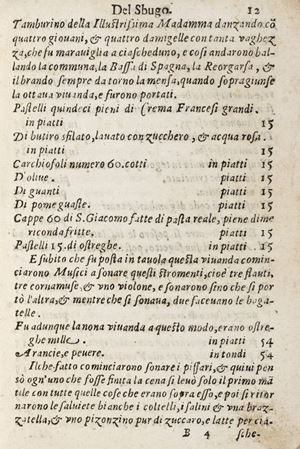 Del Sbugo. 12
Tamburino della Illustrissima Madamma danzando cō
quattro giouani, & quattro damigelle con tanta vaghez
za, che fu marauiglia a ciascheduno, e cosi andarono bal-
lando la communa, la Bassa di Spagna, la Reorgarsa, &
il brando sempre da torno la mensa, quando sopragiunse
la ottaua viuanda, e furono portati.
Pastelli quindeci pieni di Crema Francesi grandi.
in piatti 15
Di butiro sfilato, lauato con zucchero, & acqua rosa.
in piatti 15
Carchiofoli numero 60. cotti. in piatti 15
D'oliue. in piatti 15
Di guanti in piatti 15
Di pome guaste. in piatti 15
Cappe 60 di S. Giacomo fatte di pasta reale, piene di me
ricondafritte. in piatti 15
Pastelli 15. di ostreghe. in piatti 15
E subito che fu posta in tauola questa viuanda comin-
ciarono Musici a sonare questi stromenti, cioè tre flauti,
tre cornamuse, & vno violone, e sonarono sino che si por
tò l'altra, & mentre che si sonaua, due faceuano le baga-
telle.
Fu adunque la nona viuanda a questo modo, erano ostre-
ghe mille. in piatti 54
Arancie, e peuere. in tondi 54
Ilche fatto cominciarono sonare i piffari, & qui ui pen
sò ogn'uno che fosse finita la cena si leuò solo il primo man
tile con tutte quelle cose che erano sopra esso, e poi si ritor
narono le saluiete bianche i coltelli, i salini & vna braz-
zatella, & vno pizonzino pur di zuccaro, e latte per cia-
B 4 sche-